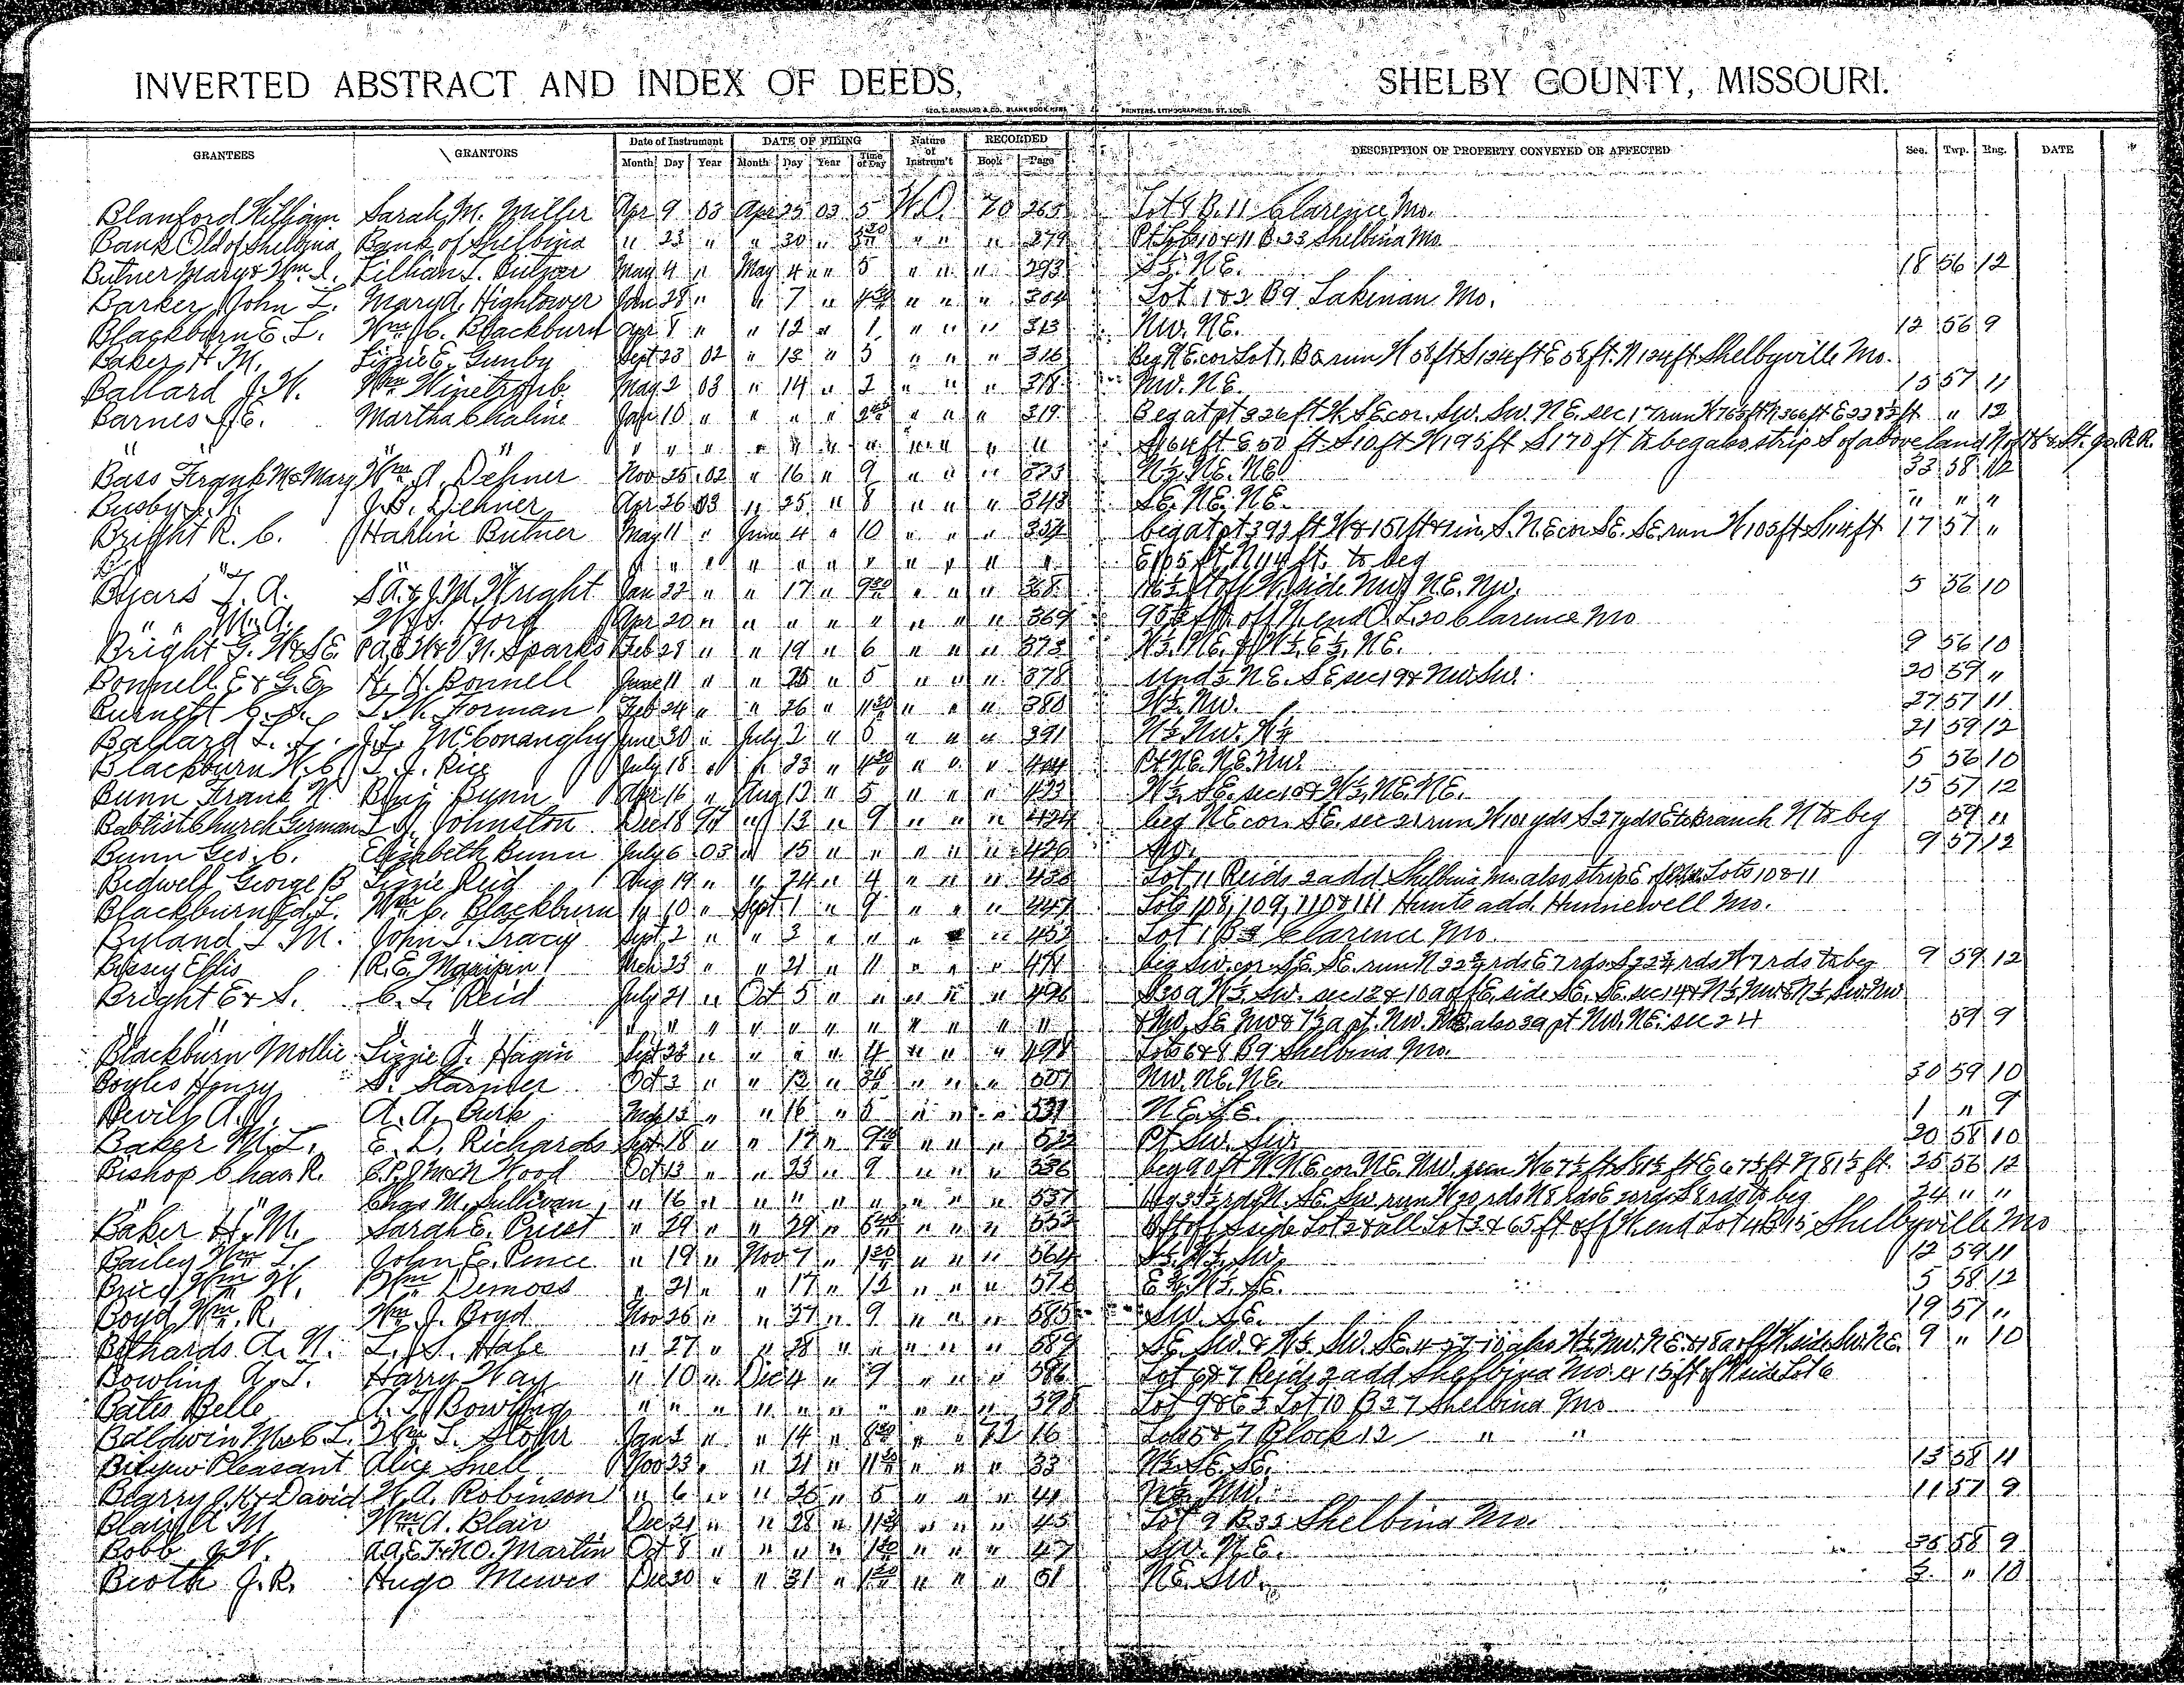 INVERTED ABSTRACT AND INDEX OF DEEDS, SHELBY COUNTY, MISSOURI.
GEO. D. BARNARD & CO. BLANK BOOK MFRS. PRINTERS, LITHOGRAPHERS, ST. LOUIS.
GRANTEES GRANTORS Date of Instrument DATE OF FILING Nature of Instrum't RECORDED DESCRIPTION OF PROPERTY CONVEYED OR AFFECTED Sec. Twp. Rng. DATE
Month Day Year Month Day Year Time of Day Book Page
Blanford William Sarah M. Miller Apr 9 03 Apr 25 03 5 W.D. 70 265 Lot 8 B. 11 Clarence Mo.
Bank Old of Shelbina Bank of Shelbina " 23 " " 30 " " " " 279 Pt Lots 10 & 11 B. 23 Shelbina Mo
Butner Mary & Wm. I. Lillian L. May 4 " May 4 " " 5 " " " 293 S½ N.E. 18 56 12
Barker John L. Mary A. Hightower Jan 28 " " 7 " 4 30 " " " 304 Lot 1 & 2 B 9 Lakenan Mo.
Blackburn E. L. Wm. C. Blackburn Apr 8 " " 12 " 1 " " " 313 Nw. NE. 12 56 9
Baker H. M. Lizzie E. Gunby Sept 23 02 " 13 " 5 " " " 316 Beg N.E. cor Lot 1, B 2 run W 58 ft S 124 ft E 58 ft. N 124 ft Shelbyville Mo.
Ballard J. W. Wm May 2 03 " 14 " 2 " " " 318 Nw. N.E. 15 57 11
Barnes J. E. Martha Chaline Jan 10 " " " " " " " 319 Beg at pt 226 ft W SE cor. Sw. Sw. N.E. sec 17 run W 763 ft N 366 ft E 228½ ft " 12
" " " " " " " " " " " " " " S 164 ft E 50 ft S 10 ft W 195 ft S 170 ft to beg also strip S of above land N of H & St. Jo. R.R.
Bass Frank W & Mary Wm. A. Dehner Nov 25 02 " 16 " 9 " " " 323 N½ N.E. N.E. 33 58 12
Busby J. N. J. B. Dehner Apr 26 03 " 25 " 8 " " " 343 S.E. N.E. N.E. " " "
Bright R. C. Hahlin Butner May 11 " June 4 " 10 " " " 354 beg at pt 392 ft W & 151 ft & 1 in. S. N.E cor S.E. S.E. run W 105 ft S 114 ft 17 57 "
" " " " " " " " " " E 105 ft N 114 ft. to beg
Byars T. A. S. A. & J. M. Wright Jan 22 " " 17 " 9 30 " " " 368 16½ ft off W. side Nw. N.E. Nw. 5 56 10
" " M. A. W. S. Hord Apr 20 " " " " " " " " 369 95½ ft off N. end O. L. 20 Clarence Mo
Bright G. W & S.E. Sparks Feb 28 " " 19 " 6 " " " 373 W½ N.E. & W½ E½ NE. 9 56 10
Bonnell E & G. E. H. H. Bonnell June 11 " " 25 " 5 " " " 378 Und ½ N.E. S.E sec 19 & Nw. Sw. 20 59 "
Burnett C. S. L. W. Forman Feb 24 " " 26 " 11 30 " " " 380 W½ Nw. 27 57 11
Ballard L. L. J. L. McConanghy June 30 " July 2 " 5 " " " 391 N½ Nw. 21 59 12
Blackburn W. C. T. J. Rice July 18 " " 23 " 4 30 " " " 404 Pt N.E. N.E. Nw. 5 56 10
Bunn Frank W Benj Bunn Apr 16 " Aug 12 " 5 " " " 423 W½ S.E. sec 10 & W½ N.E. N.E. 15 57 12
Babtist Church German L. J. Johnston Dec 18 97 " 13 " 9 " " " 424 beg N.E cor. S.E. sec 21 run W 101 yds S 27 yds E to Branch N to beg 59 "
Bunn Geo. C. Elizabeth Bunn July 6 03 " 15 " " " " " 426 Sw. 9 57 12
Bidwell George B Lizzie Reid Aug 19 " " 24 " 4 " " " 436 Lot 11 Reids 2 add Shelbina Mo. also strip E Lots 10 & 11
Blackburn Ed. L. Wm. C. Blackburn " 10 " Sept 1 " 9 " " " 447 Lots 108, 109, 110 & 111 Hunts add. Hunnewell Mo.
Byland T. M. John T. Tracy Sept 2 " " 3 " " " " 453 Lot 1 B 3 Clarence Mo.
Bissey Effis R. E. Mch 23 " " 21 " 11 " " " 471 beg Sw. cor S.E. S.E. run N 22¾ rds E 7 rds S 22¾ rds W 7 rds to beg 9 59 12
Bright E & S. C. L. Reid July 21 " Oct 5 " " " " " 496 S 30 a N½ Sw. sec 13 & 10 a off E. side S.E. S.E. sec 14 & N½ Nw & N½ Sw. Nw
" " " " " " " " " " " " " & Nw. S.E Nw & 7½ a pt. Nw. NE. also 39 pt Nw. N.E. sec 24 59 9
Blackburn Mollie Lizzie A. Hagin Sept 23 " " " " 4 " " " 498 Lots 6 & 8 B 9 Shelbina Mo.
Boyles Henry S. Starmer Oct 3 " " 12 " " " " 507 Nw. NE. NE. 30 59 10
Bevill A. J. A. A. Burk Mch 13 " " 16 " 5 " " " 531 N.E. S.E. 1 " 9
Baker M. L. E. D. Richards Sept 18 " " 17 " " " " 522 Pt Sw. Sw. 20 58 10
Bishop Chas R. Wood Oct 13 " " 23 " 9 " " " 536 beg 90 ft W. N.E. cor N.E. NW. run W 67½ ft S 81½ ft E 67½ ft N 81½ ft. 25 56 12
" " Chas M. Sullivan " 16 " " " " " " " " 537 beg 33½ rds N. S.E. Sw. run W 20 rds N 8 rds E 20 rds S 8 rds to beg 24 " "
Baker H. M. Sarah E. Priest " 29 " " 29 " " " " 553 off S side Lot 2 & all Lot 3 & 65 ft off W. end Lot 4 B 15 Shelbyville Mo
Bailey Wm L. John E. Pence " 19 " Nov 7 " 1 30 " " " 564 S½ N½ Sw. 12 59 11
Price Wm W. Wm Demoss " 21 " " 17 " 12 " " " 576 W½ S.E. 5 58 12
Boyd Wm. R. Wm J. Boyd Nov 26 " " 27 " 9 " " " 585 Sw. S.E. 19 57 "
Bethards A. N. L. S. Hale " 27 " " 28 " " " " " 587 S.E. Sw. & W½ Sw. S.E. 4-57-10 also W½ Nw. N.E. & 18 a off W. side Sw. N.E. 9 " 10
Bowling A. T. Harry Way " 10 " Dec 4 " 9 " " " 586 Lot 6 & 7 Reids 2 add Shelbina Mo. ex 15 ft of W side Lot 6
Bates Belle A. T. Bowling " " " " " " " " " " 598 Lot 9 & E½ Lot 10 B 27 Shelbina Mo
Baldwin M & C. L. Wm. T. Jan 2 " " 14 " 8 30 " " 72 16 Lots 5 & 7 Block 12 " "
Pleasant Alice Snell Nov 23 " " 21 " " " " 33 W½ S.E. S.E. 13 58 11
Bgarry J. K & David W. A. Robinson " 6 " " 26 " 5 " " " 41 N½ Nw. 11 57 9
Blair A M Wm. A. Blair Dec 21 " " 28 " " " " 45 Lot 9 B. 35 Shelbina Mo.
Bobb J. W. Martin Oct 8 " " " " 1 30 " " " 47 Sw. N.E. 35 58 9
Broth J. R. Hugo Mewes Dec 30 " " 31 " 1 30 " " " 51 NE. Sw. 3 " 10